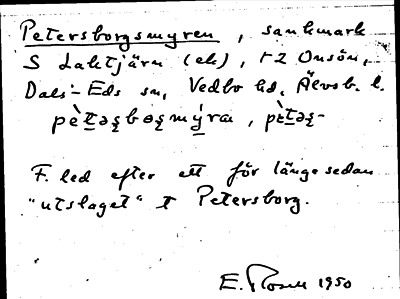 Petersborgsmyren, sankmark
S Laktjärn (ek), t 2 Onsön,
Dals-Eds sn, Vedbo hd, Älvsb. l.
pètəʂbəʂmýra, pètəʂ-
F. led efter ett för länge sedan
"utslaget" t Petersborg.
E. Rosell 1950